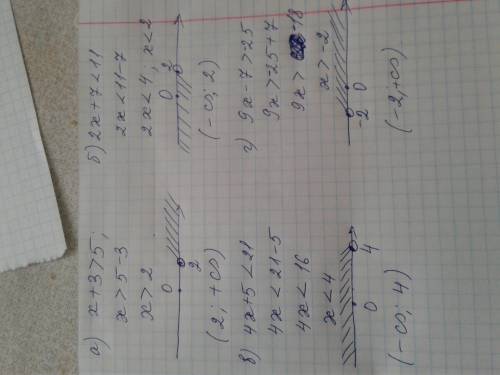 а) x+3>5;
x>5-3
x>2
0 2
(2; +∞)
б) 2x+7<11
2x<11-7
2x<4, x<2
0 2
(-∞; 2)
в) 4x+5<21
4x<21-5
4x<16
x<4
0 4
(-∞; 4)
г) 9x-7>25
9x>-25+7
9x> -18
x>-2
-2 0
(-2; +∞)